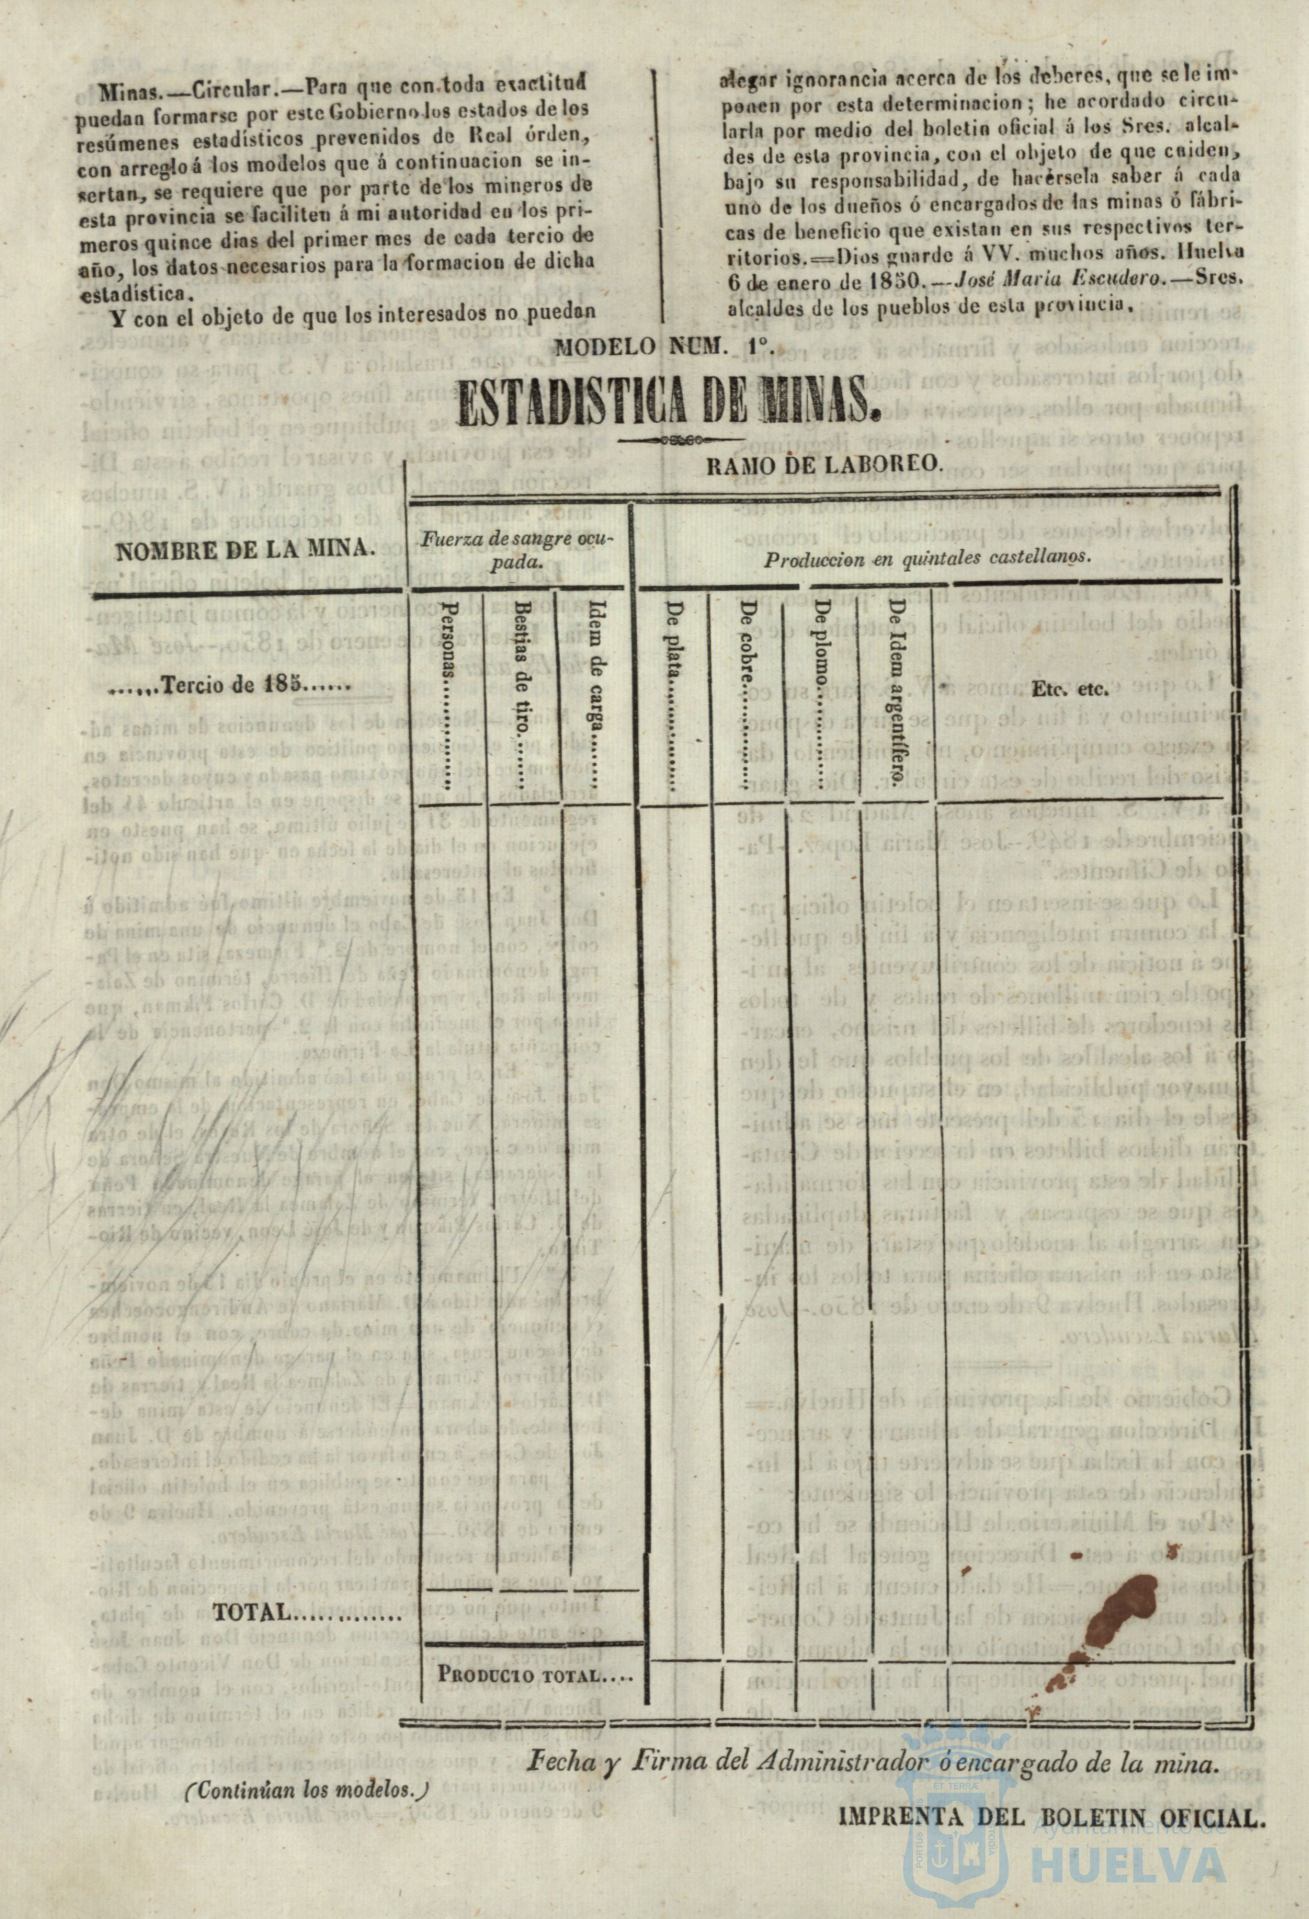 Minas.—Circular.—Para que con toda exactitud
puedan formarse por este Gobierno los estados de los
resúmenes estadísticos prevenidos de Real órden,
con arreglo á los modelos que á continuacion se in-
sertan, se requiere que por parte de los mineros de
esta provincia se faciliten á mi autoridad en los pri-
meros quince dias del primer mes de cada tercio de
año, los datos necesarios para la formacion de dicha
estadística.
Y con el objeto de que los interesados no puedan
alegar ignorancia acerca de los deberes, que se le im-
ponen por esta determinacion; he acordado circu-
larla por medio del boletin oficial á los Sres. alcal-
des de esta provincia, con el objeto de que cuiden,
bajo su responsabilidad, de hacérsela saber á cada
uno de los dueños ó encargados de las minas ó fábri-
cas de beneficio que existan en sus respectivos ter-
ritorios.=Dios guarde á VV. muchos años. Huelva
6 de enero de 1850.—José Maria Escudero.—Sres.
alcaldes de los pueblos de esta provincia.
MODELO NUM. 1º.
ESTADISTICA DE MINAS.
RAMO DE LABOREO.
NOMBRE DE LA MINA.
Fuerza de sangre ocu-
pada.
Produccion en quintales castellanos.
......Tercio de 185......
Personas...............
Bestias de tiro........
Idem de carga........
De plata...............
De cobre...............
De plomo...............
De Idem argentífero.
Etc. etc.
TOTAL.............
PRODUCTO TOTAL....
Fecha y Firma del Administrador ó encargado de la mina.
(Continúan los modelos.)
IMPRENTA DEL BOLETIN OFICIAL.
Ayuntamiento de
HUELVA